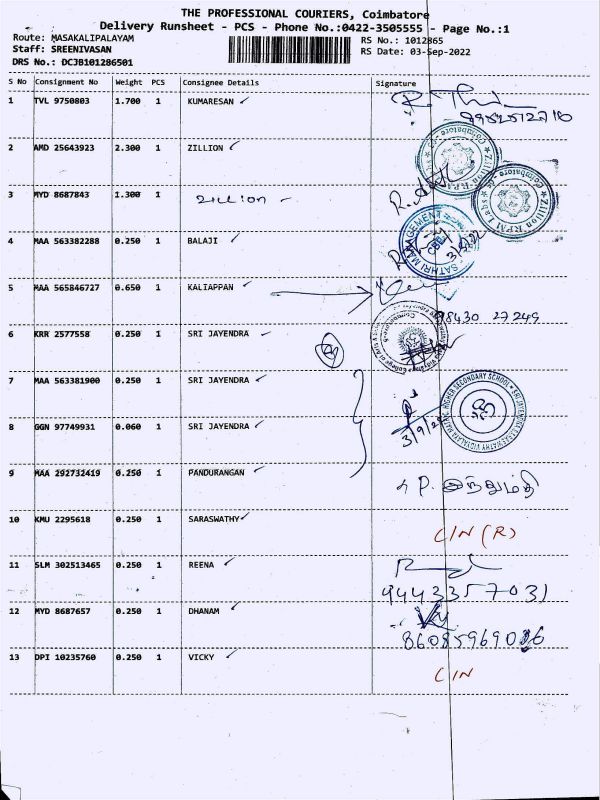 THE PROFESSIONAL COURIERS, Coimbatore
Delivery Runsheet - PCS - Phone No.:0422-3505555 - Page No.:1
Route: MASAKALIPALAYAM
RS No.: 1012865
Staff: SREENIVASAN
RS Date: 03-Sep-2022
DRS No.: DCJB101286501
S No Consignment No Weight PCS Consignee Details Signature
1 TVL 9750803 1.700 1 KUMARESAN ✓
2 AMD 25643923 2.300 1 ZILLION ✓
Zillion RPM Labs * Coimbatore
3 MYD 8687843 1.300 1 zillion -
Zillion RPM Labs * Coimbatore
4 MAA 563382288 0.250 1 BALAJI ✓
SATHRI MANAGEMENT
3/9/22
5 MAA 565846727 0.650 1 KALIAPPAN ✓
98430 27249
6 KRR 2577558 0.250 1 SRI JAYENDRA ✓
7 MAA 563381900 0.250 1 SRI JAYENDRA ✓
8 GGN 97749931 0.060 1 SRI JAYENDRA ✓
3/9/22
9 MAA 292732419 0.250 1 PANDURANGAN ✓
P. இந்துமதி
10 KMU 2295618 0.250 1 SARASWATHY ✓
C/N (R)
11 SLM 302513465 0.250 1 REENA ✓
9443357031
12 MYD 8687657 0.250 1 DHANAM ✓
13 DPI 10235760 0.250 1 VICKY ✓
C/N